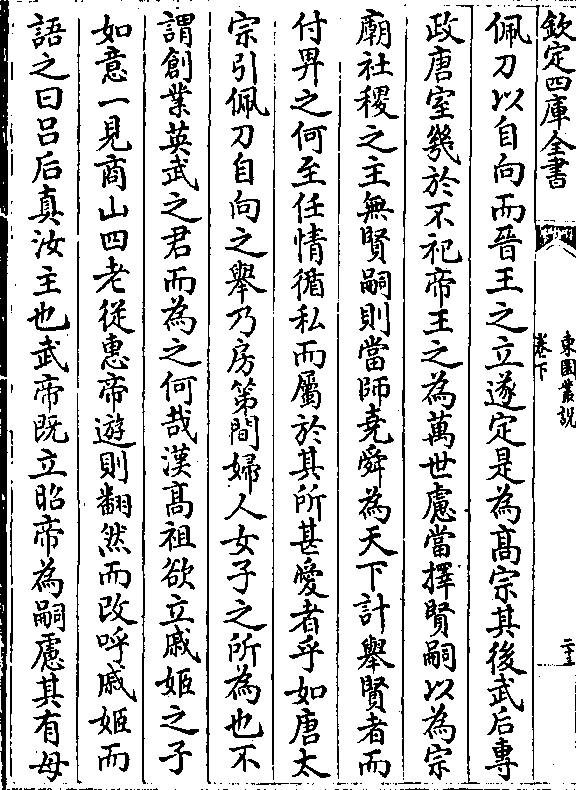 欽定四庫全書
東園叢說
卷下
二十三
佩刀以自向而晉王之立遂定是為高宗其後武后專
政唐室幾於不祀帝王之為萬世慮當擇賢嗣以為宗
廟社稷之主無賢嗣則當師堯舜為天下計舉賢者而
付畀之何至任情循私而屬於其所甚愛者乎如唐太
宗引佩刀自向之舉乃房第間婦人女子之所為也不
謂創業英武之君而為之何哉漢高祖欲立戚姬之子
如意一見商山四老從惠帝遊則翻然而改呼戚姬而
語之曰呂后真汝主也武帝既立昭帝為嗣慮其有母